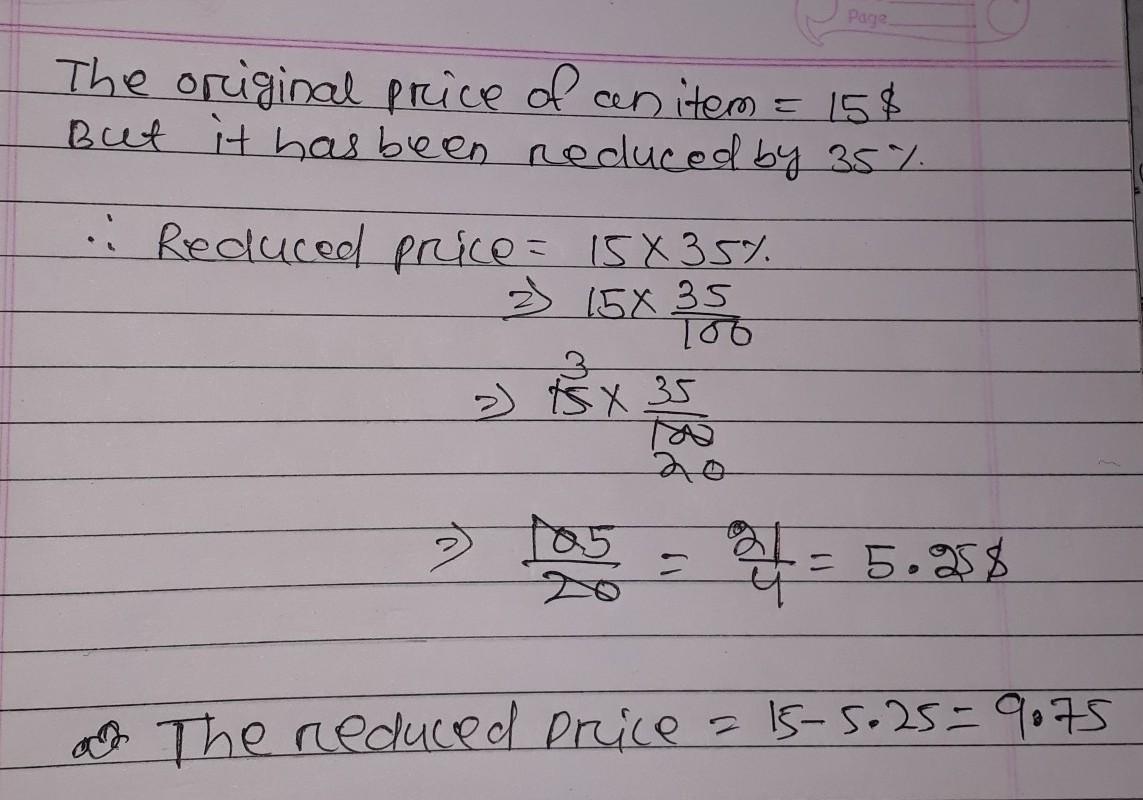 Page
The original price of an item = 15$
But it has been reduced by 35%.
∴ Reduced price = 15 × 35%
⇒ 15 × 35/100
3
⇒ 15 × 35/100
20
⇒ 105/20 = 21/4 = 5.25$
The reduced price = 15 - 5.25 = 9.75